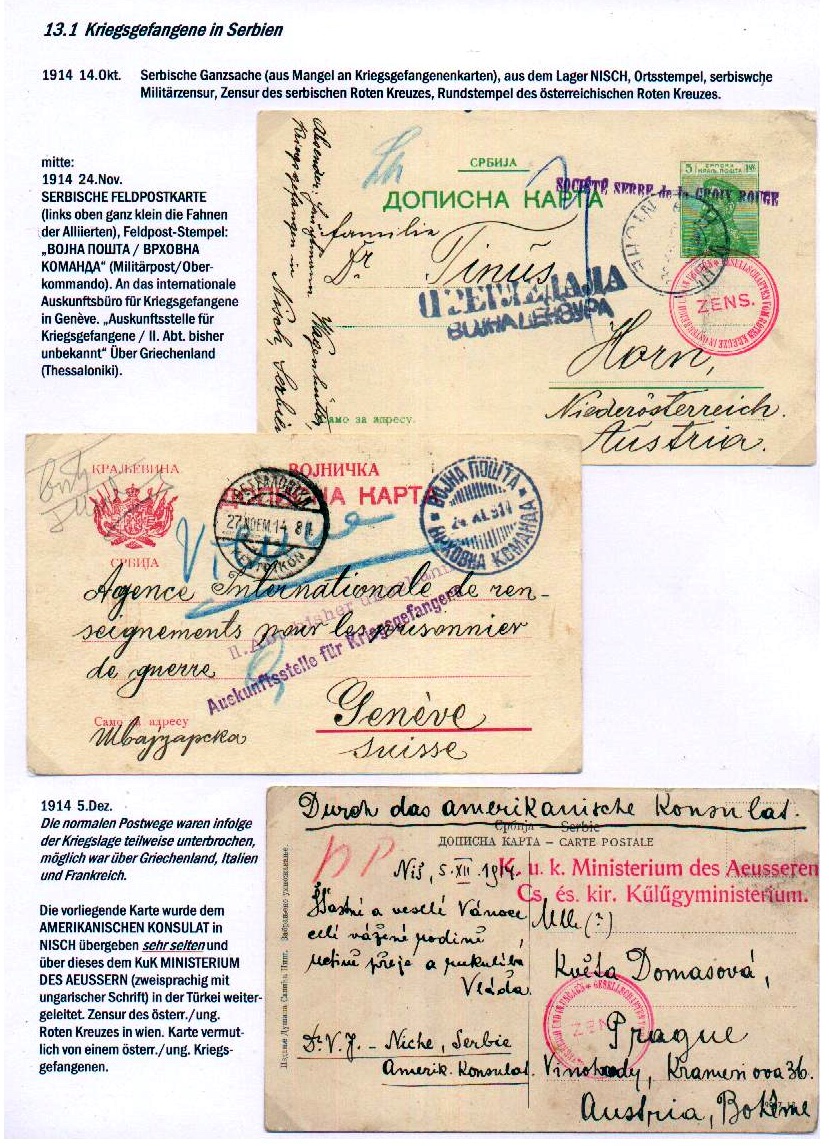 13.1 Kriegsgefangene in Serbien
1914 14.Okt. Serbische Ganzsache (aus Mangel an Kriegsgefangenenkarten), aus dem Lager NISCH, Ortsstempel, serbiswche
Militärzensur, Zensur des serbischen Roten Kreuzes, Rundstempel des österreichischen Roten Kreuzes.
mitte:
1914 24.Nov.
SERBISCHE FELDPOSTKARTE
(links oben ganz klein die Fahnen
der Alliierten), Feldpost-Stempel:
„ВОЈНА ПОШТА / ВРХОВНА
КОМАНДА“ (Militärpost/Ober-
kommando). An das internationale
Auskunftsbüro für Kriegsgefangene
in Genève. „Auskunftsstelle für
Kriegsgefangene / II. Abt. bisher
unbekannt“ Über Griechenland
(Thessaloniki).
СРБИЈА
ДОПИСНА КАРТА
SOCIÉTÉ SERBE de la CROIX ROUGE
5
Absender:
Kriegsgefangen in
Nisch, Serbien
Familie
Dr Tinus
ПРЕГЛЕДАЛА
ВОЈНА ЦЕНЗУРА
ZENS.
Horn,
Niederösterreich.
Austria.
Само за адресу.
КРАЉЕВИНА
СРБИЈА
ВОЈНИЧКА
ДОПИСНА КАРТА
27 ΝΟΕΜ.14
ВОЈНА ПОШТА
ВРХОВНА КОМАНДА
Agence Internationale de ren-
seignements pour les prisonnier
de guerre
II. Abt. bisher
Auskunftsstelle für Kriegsgefangene
Genève
Suisse
Само за адресу
Швајцарска
1914 5.Dez.
Die normalen Postwege waren infolge
der Kriegslage teilweise unterbrochen,
möglich war über Griechenland, Italien
und Frankreich.
Die vorliegende Karte wurde dem
AMERIKANISCHEN KONSULAT in
NISCH übergeben sehr selten und
über dieses dem KuK MINISTERIUM
DES AEUSSERN (zweisprachig mit
ungarischer Schrift) in der Türkei weiter-
geleitet. Zensur des österr./ung.
Roten Kreuzes in wien. Karte vermut-
lich von einem österr./ung. Kriegs-
gefangenen.
Durch das amerikanische Konsulat.
Србија Serbie
ДОПИСНА КАРТА – CARTE POSTALE
Niš, 5.XII.1914.
K. u. k. Ministerium des Aeusseren
Cs. és. kir. Külügyministerium.
Šťastné a veselé Vánoce
celé vážené rodině
přeje a
Vláda.
Mlle (?)
Květa Domasová,
Prague
Dr. V. J. – Niche, Serbie
Amerik. Konsulat.
Vinohrady, Krameriova 36.
Austria, Bohême